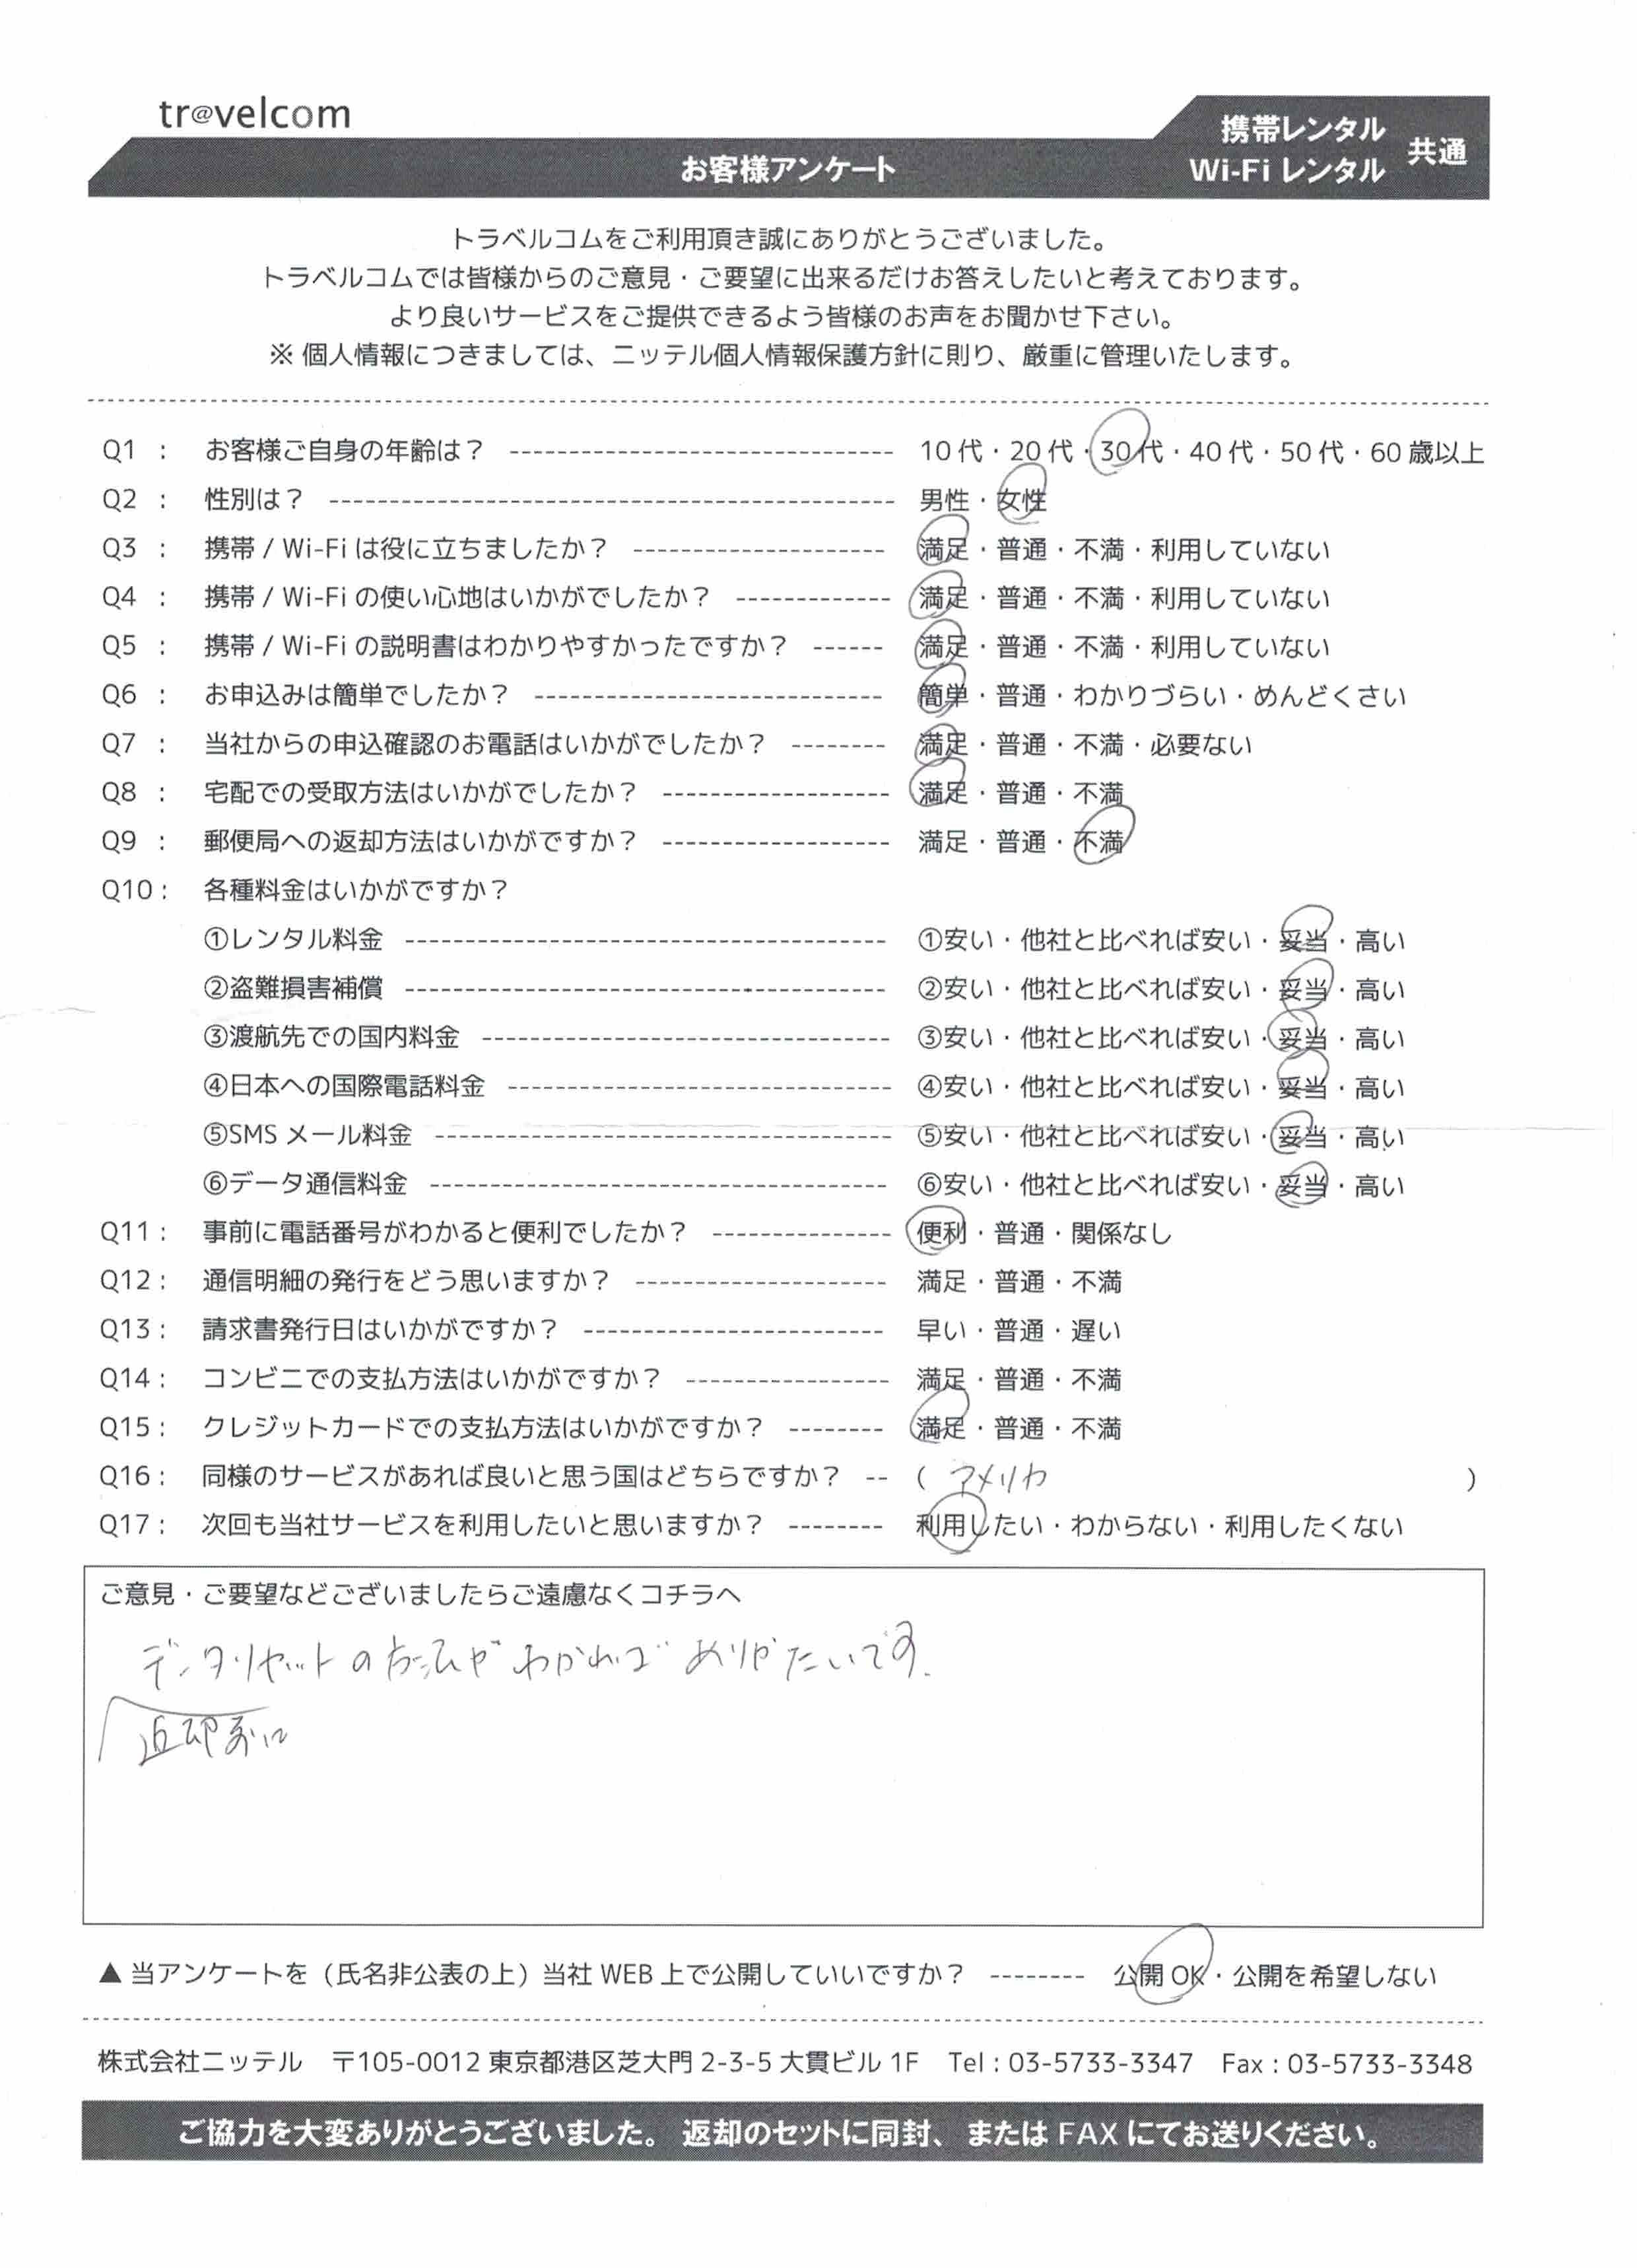 tr@velcom
携帯レンタル
Wi-Fi レンタル
共通
お客様アンケート
トラベルコムをご利用頂き誠にありがとうございました。
トラベルコムでは皆様からのご意見・ご要望に出来るだけお答えしたいと考えております。
より良いサービスをご提供できるよう皆様のお声をお聞かせ下さい。
※ 個人情報につきましては、ニッテル個人情報保護方針に則り、厳重に管理いたします。
Q1 : お客様ご自身の年齢は? ------------------------------ 10 代・20 代・30 代・40 代・50 代・60 歳以上
Q2 : 性別は? ------------------------------------------------ 男性・女性
Q3 : 携帯 / Wi-Fi は役に立ちましたか? --------------------- 満足・普通・不満・利用していない
Q4 : 携帯 / Wi-Fi の使い心地はいかがでしたか? ------------- 満足・普通・不満・利用していない
Q5 : 携帯 / Wi-Fi の説明書はわかりやすかったですか? ------ 満足・普通・不満・利用していない
Q6 : お申込みは簡単でしたか? ----------------------------- 簡単・普通・わかりづらい・めんどくさい
Q7 : 当社からの申込確認のお電話はいかがでしたか? -------- 満足・普通・不満・必要ない
Q8 : 宅配での受取方法はいかがでしたか? ------------------- 満足・普通・不満
Q9 : 郵便局への返却方法はいかがですか? ------------------- 満足・普通・不満
Q10 : 各種料金はいかがですか?
①レンタル料金 ---------------------------------------- ①安い・他社と比べれば安い・妥当・高い
②盗難損害補償 ---------------------------------------- ②安い・他社と比べれば安い・妥当・高い
③渡航先での国内料金 ---------------------------------- ③安い・他社と比べれば安い・妥当・高い
④日本への国際電話料金 -------------------------------- ④安い・他社と比べれば安い・妥当・高い
⑤SMS メール料金 -------------------------------------- ⑤安い・他社と比べれば安い・妥当・高い
⑥データ通信料金 -------------------------------------- ⑥安い・他社と比べれば安い・妥当・高い
Q11 : 事前に電話番号がわかると便利でしたか? --------------- 便利・普通・関係なし
Q12 : 通信明細の発行をどう思いますか? --------------------- 満足・普通・不満
Q13 : 請求書発行日はいかがですか? ------------------------- 早い・普通・遅い
Q14 : コンビニでの支払方法はいかがですか? ----------------- 満足・普通・不満
Q15 : クレジットカードでの支払方法はいかがですか? -------- 満足・普通・不満
Q16 : 同様のサービスがあれば良いと思う国はどちらですか? -- ( アメリカ )
Q17 : 次回も当社サービスを利用したいと思いますか? -------- 利用したい・わからない・利用したくない
ご意見・ご要望などございましたらご遠慮なくコチラへ
データリセットの方法がわかればありがたいです.
返却前に
▲ 当アンケートを（氏名非公表の上）当社 WEB 上で公開していいですか? -------- 公開 OK・公開を希望しない
株式会社ニッテル 〒105-0012 東京都港区芝大門 2-3-5 大貫ビル 1F Tel : 03-5733-3347 Fax : 03-5733-3348
ご協力を大変ありがとうございました。 返却のセットに同封、または FAX にてお送りください。